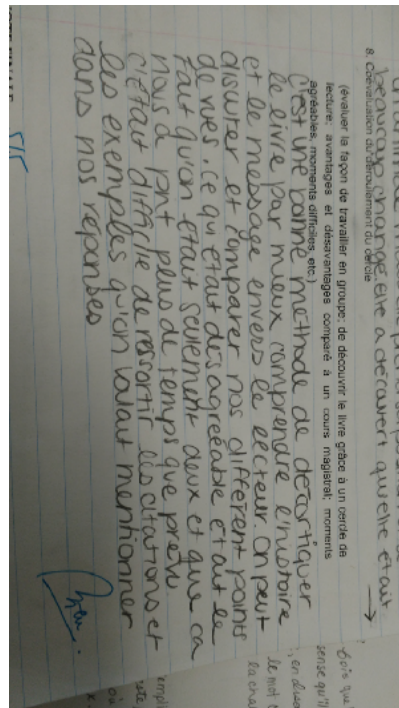 beaucoup changé, elle a découvert qu'elle était →
8. Coévaluation du déroulement du cercle
(évaluer la façon de travailler en groupe; de découvrir le livre grâce à un cercle de
lecture; avantages et désavantages comparé à un cours magistral; moments
agréables, moments difficiles, etc.)
C'est une bonne méthode de décortiquer
le livre par mieux comprendre l'histoire
et le message envers le lecteur. On peut
discuter et comparer nos différent points
de vues. Ce qu'était désagréable était le
fait qu'on était seulement deux et que ca
nous a prit plus de temps que prévu
c'était difficile de ressortir les citations et
les exemples qu'on voulait mentionner
dans nos réponses
5/5
bois que
sense qu'il
le mot
la cha